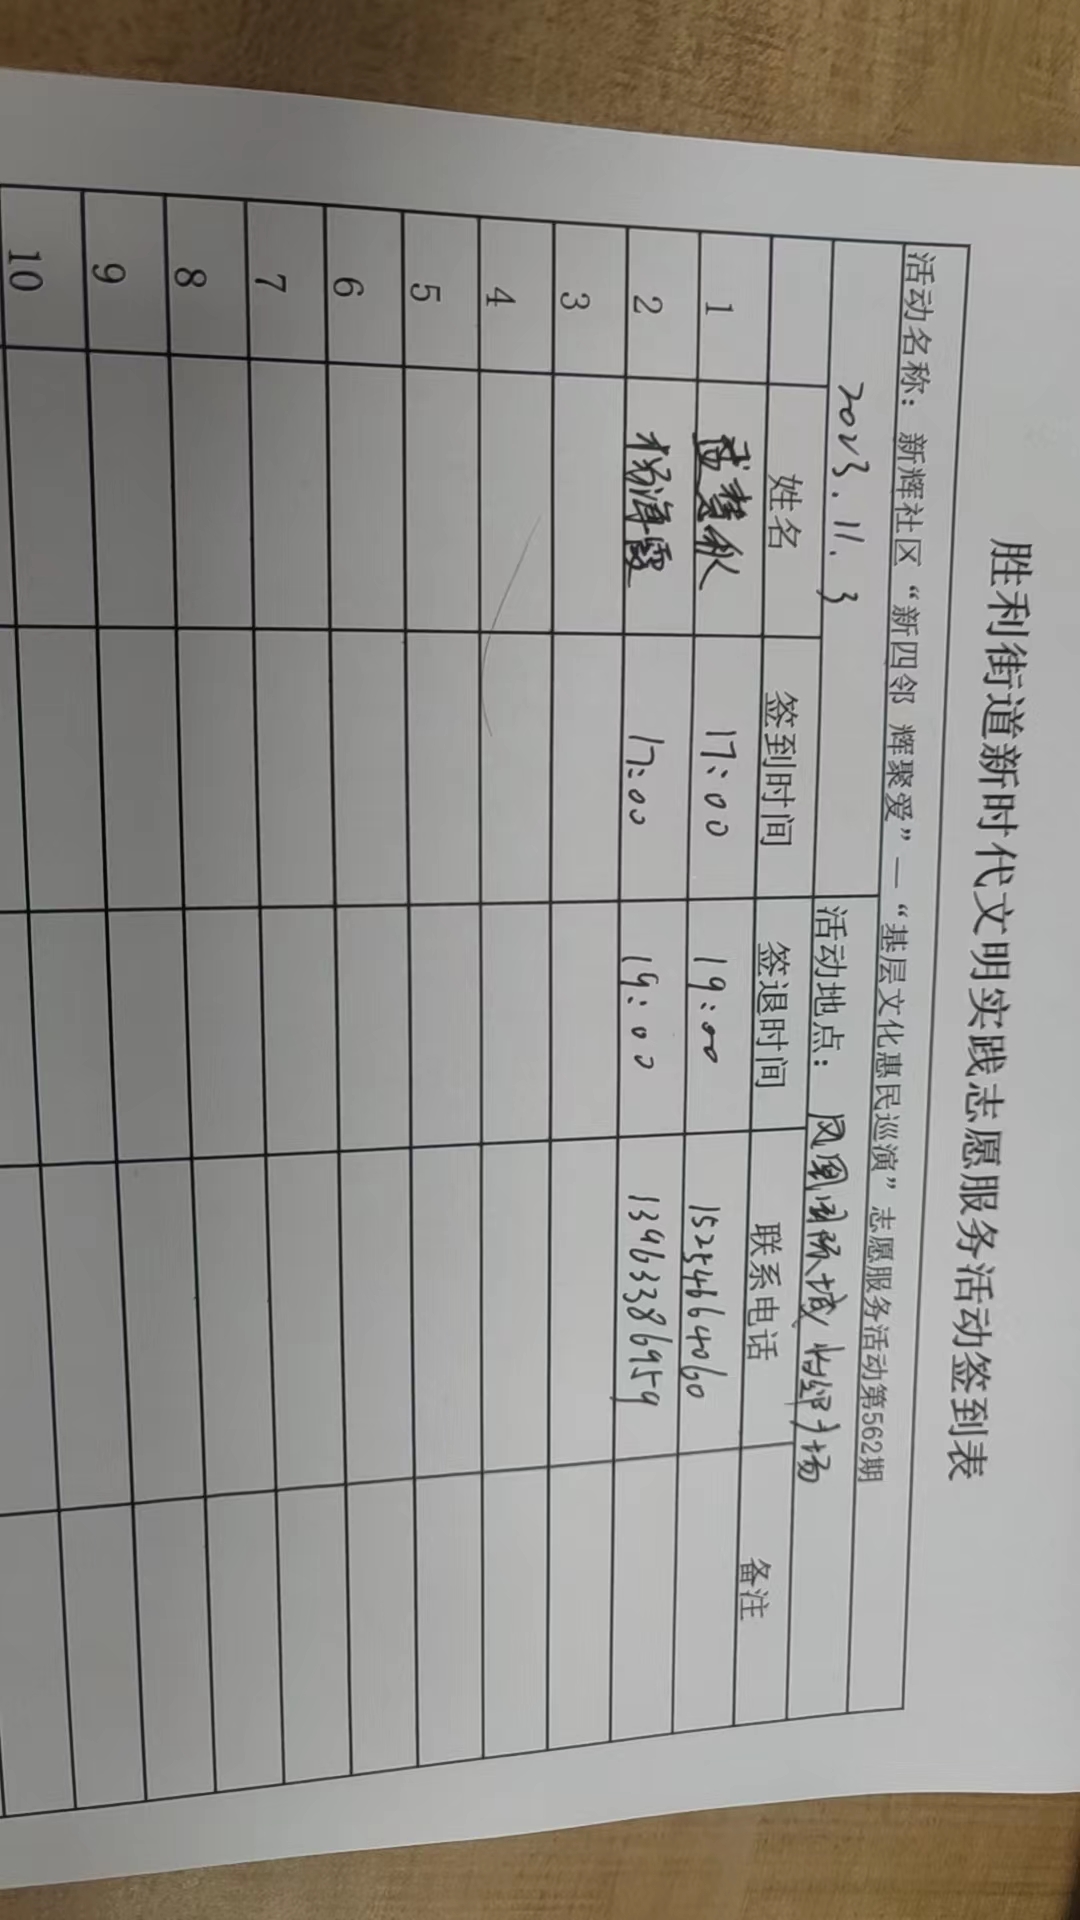 胜利街道新时代文明实践志愿服务活动签到表
活动名称：新辉社区“新四邻 辉聚爱”—“基层文化惠民巡演”志愿服务活动第562期
2023.11.3 活动地点：凤凰国际城 广场
姓名 签到时间 签退时间 联系电话 备注
1 慧秋 17:00 19:00 15254664060
2 杨海霞 17:00 19:00 13963386959
3
4
5
6
7
8
9
10